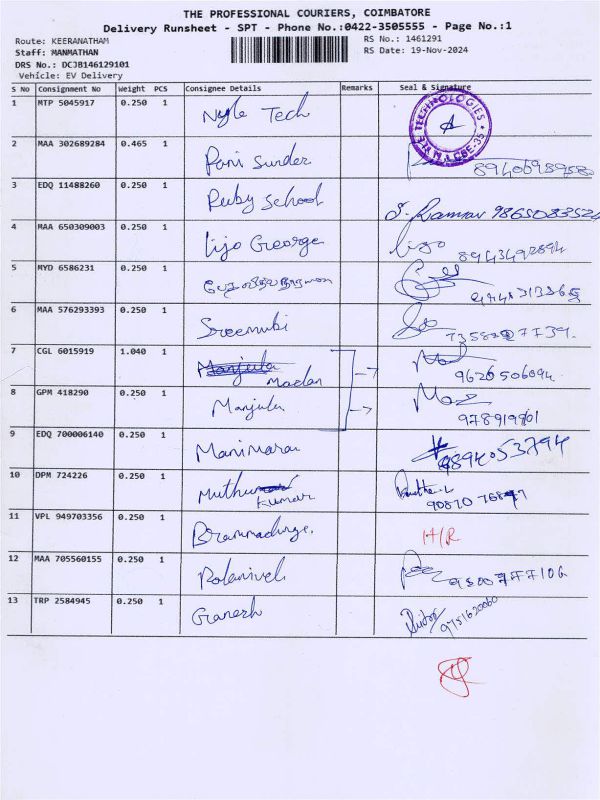 THE PROFESSIONAL COURIERS, COIMBATORE
Delivery Runsheet - SPT - Phone No.:0422-3505555 - Page No.:1
Route: KEERANATHAM
RS No.: 1461291
Staff: MANMATHAN
RS Date: 19-Nov-2024
DRS No.: DCJB146129101
Vehicle: EV Delivery
S No Consignment No Weight PCS Consignee Details Remarks Seal & Signature
1 MTP 5045917 0.250 1 Nyle Tech
TECHNOLOGIES
2 MAA 302689284 0.465 1 Pani Sunder
3 EDQ 11488260 0.250 1 Ruby School
S. Raman 9865083524
4 MAA 650309003 0.250 1 Lijo George Lijo
8943492894
5 MYD 6586231 0.250 1
6 MAA 576293393 0.250 1 Sreenubi
7 CGL 6015919 1.040 1 Manjula
Madan
9626506094
8 GPM 418290 0.250 1 Manjula
978919801
9 EDQ 700006140 0.250 1 Manimaran 9894053794
10 DPM 724226 0.250 1 Muthu
Kumar
11 VPL 949703356 0.250 1 H/R
12 MAA 705560155 0.250 1 Palanivel
13 TRP 2584945 0.250 1 Ganesh
9751620060